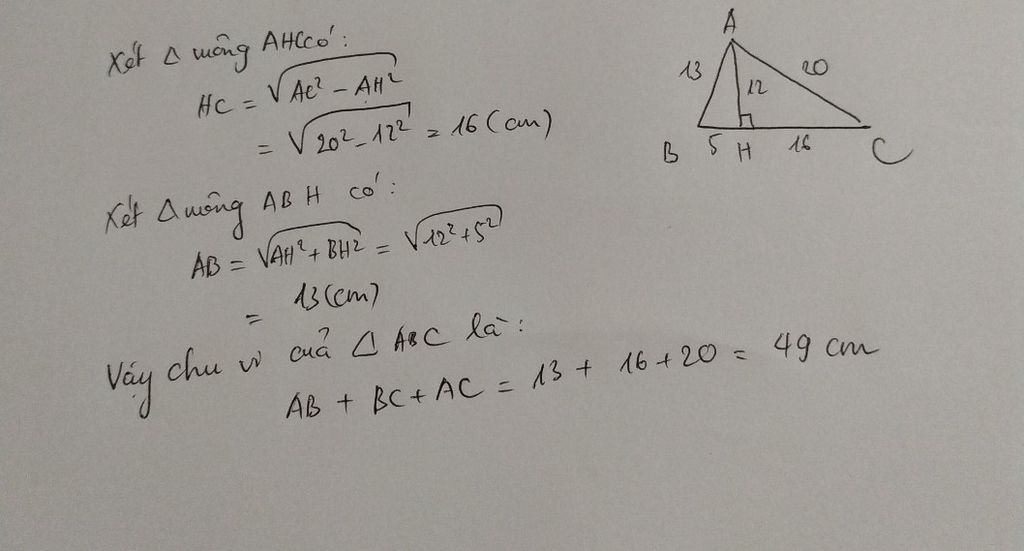 Xét Δ vuông AHC có:
HC = √AC² - AH²
= √20² - 12² = 16 (cm)
Xét Δ vuông ABH có:
AB = √AH² + BH² = √12² + 5²
= 13 (cm)
Vậy chu vi của Δ ABC là:
AB + BC + AC = 13 + 16 + 20 = 49 cm
A
13 12 20
B 5 H 16 C